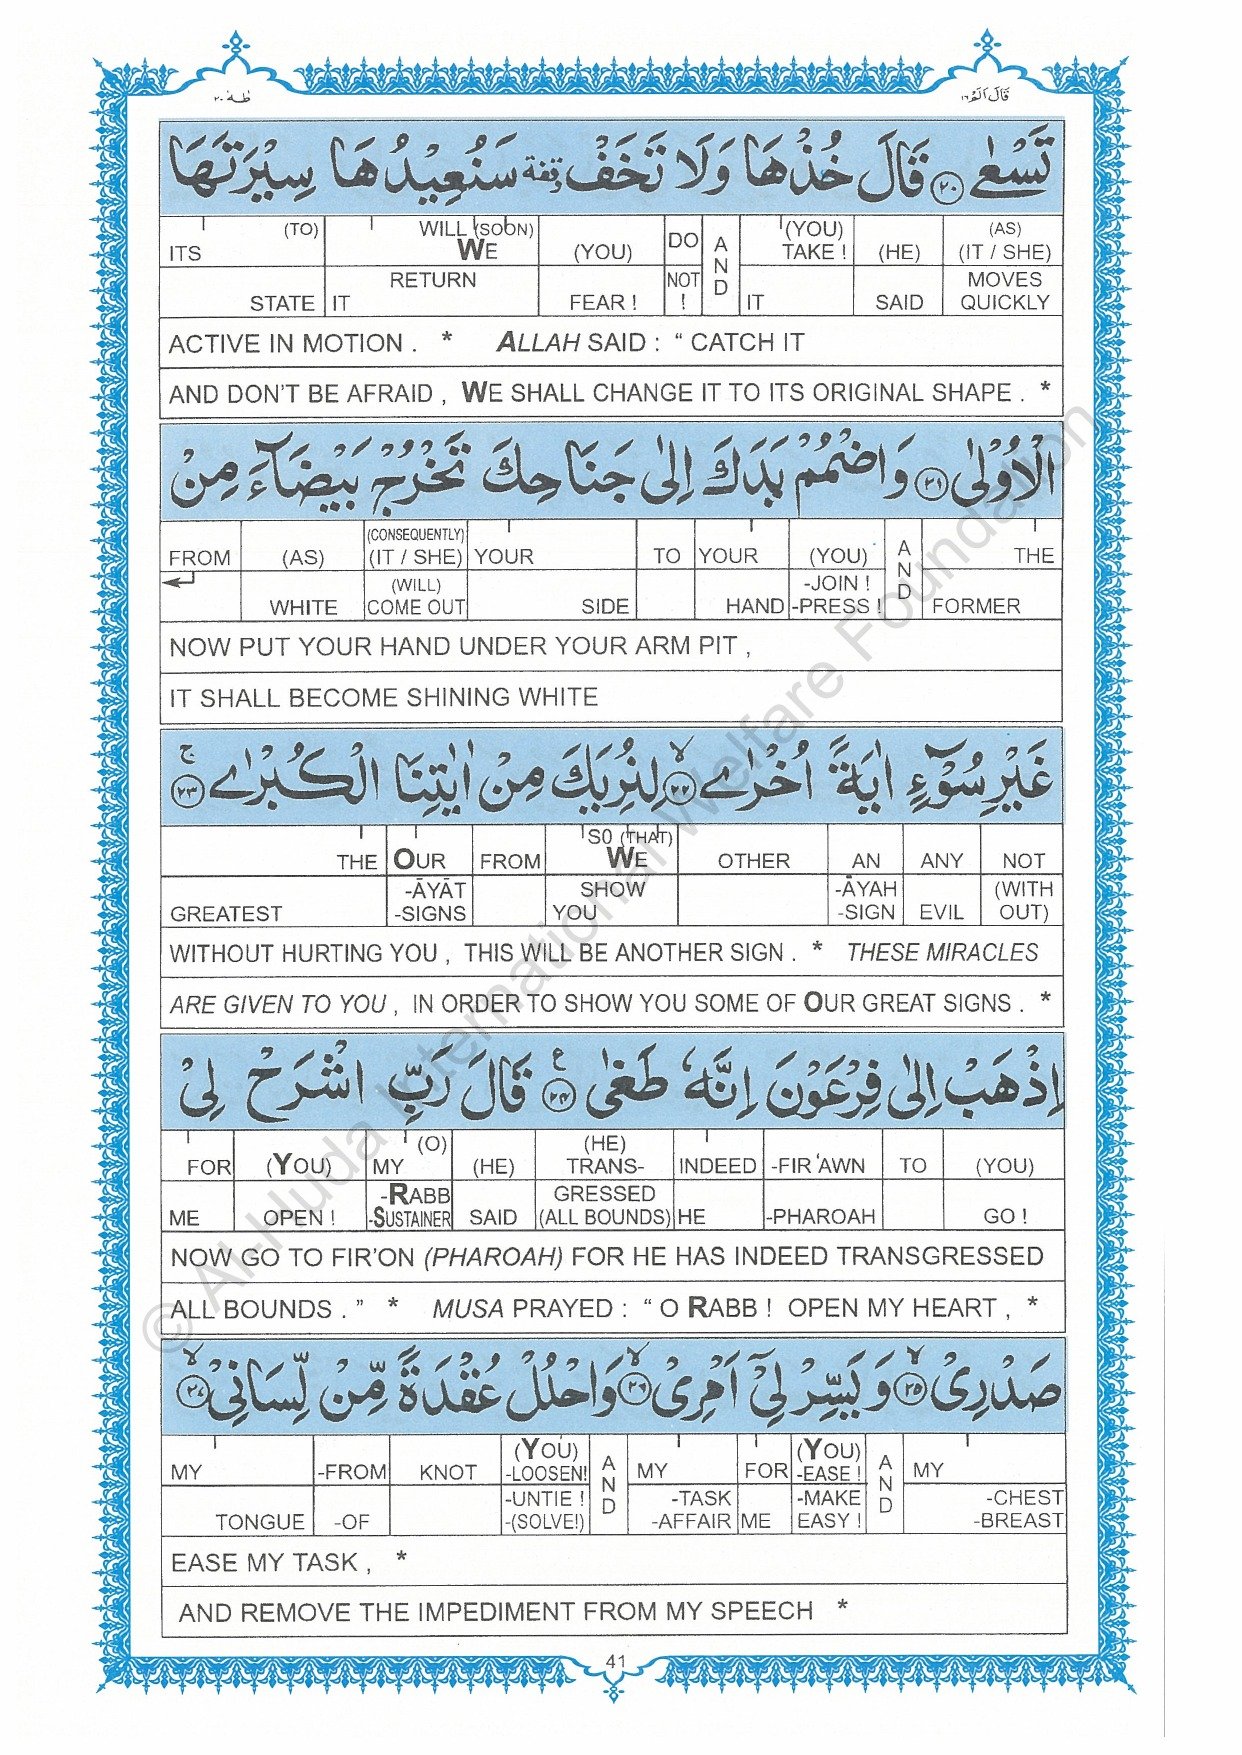 قَالَ اَلَمْ ١٦
طٰهٰ ٢٠
تَسْعٰى ﴿٢٠﴾ قَالَ خُذْهَا وَلَا تَخَفْ وقفة سَنُعِيْدُهَا سِيْرَتَهَا
ITS (TO) WILL (SOON) WE (YOU) DO AND (YOU) TAKE ! (HE) (AS) (IT / SHE)
STATE IT RETURN FEAR ! NOT ! IT SAID MOVES QUICKLY
ACTIVE IN MOTION . * ALLAH SAID : “ CATCH IT
AND DON’T BE AFRAID , WE SHALL CHANGE IT TO ITS ORIGINAL SHAPE . *
الْاُوْلٰى ﴿٢١﴾ وَاضْمُمْ يَدَكَ اِلٰى جَنَاحِكَ تَخْرُجْ بَيْضَآءَ مِنْ
FROM (AS) (CONSEQUENTLY) (IT / SHE) YOUR TO YOUR (YOU) AND THE
WHITE (WILL) COME OUT SIDE HAND -JOIN ! -PRESS ! FORMER
NOW PUT YOUR HAND UNDER YOUR ARM PIT ,
IT SHALL BECOME SHINING WHITE
غَيْرِ سُوْٓءٍ اٰيَةً اُخْرٰى ﴿٢٢﴾ لِنُرِيَكَ مِنْ اٰيٰتِنَا الْكُبْرٰى ﴿٢٣﴾
THE OUR FROM SO (THAT) WE OTHER AN ANY NOT
GREATEST -ĀYĀT -SIGNS SHOW YOU -ĀYAH -SIGN EVIL (WITH OUT)
WITHOUT HURTING YOU , THIS WILL BE ANOTHER SIGN . * THESE MIRACLES
ARE GIVEN TO YOU , IN ORDER TO SHOW YOU SOME OF OUR GREAT SIGNS . *
اِذْهَبْ اِلٰى فِرْعَوْنَ اِنَّهٗ طَغٰى ﴿٢٤﴾ قَالَ رَبِّ اشْرَحْ لِيْ
FOR (YOU) MY (O) (HE) (HE) TRANS- INDEED -FIR‘AWN TO (YOU)
ME OPEN ! -RABB -SUSTAINER SAID GRESSED (ALL BOUNDS) HE -PHAROAH GO !
NOW GO TO FIR’ON (PHAROAH) FOR HE HAS INDEED TRANSGRESSED
ALL BOUNDS . ” * MUSA PRAYED : “ O RABB ! OPEN MY HEART , *
صَدْرِيْ ﴿٢٥﴾ وَيَسِّرْ لِيْٓ اَمْرِيْ ﴿٢٦﴾ وَاحْلُلْ عُقْدَةً مِّنْ لِّسَانِيْ ﴿٢٧﴾
MY -FROM KNOT (YOU) -LOOSEN! AND MY FOR (YOU) -EASE ! AND MY
TONGUE -OF -UNTIE ! -(SOLVE!) -TASK -AFFAIR ME -MAKE EASY ! -CHEST -BREAST
EASE MY TASK , *
AND REMOVE THE IMPEDIMENT FROM MY SPEECH *
41
© Al-Huda International Welfare Foundation